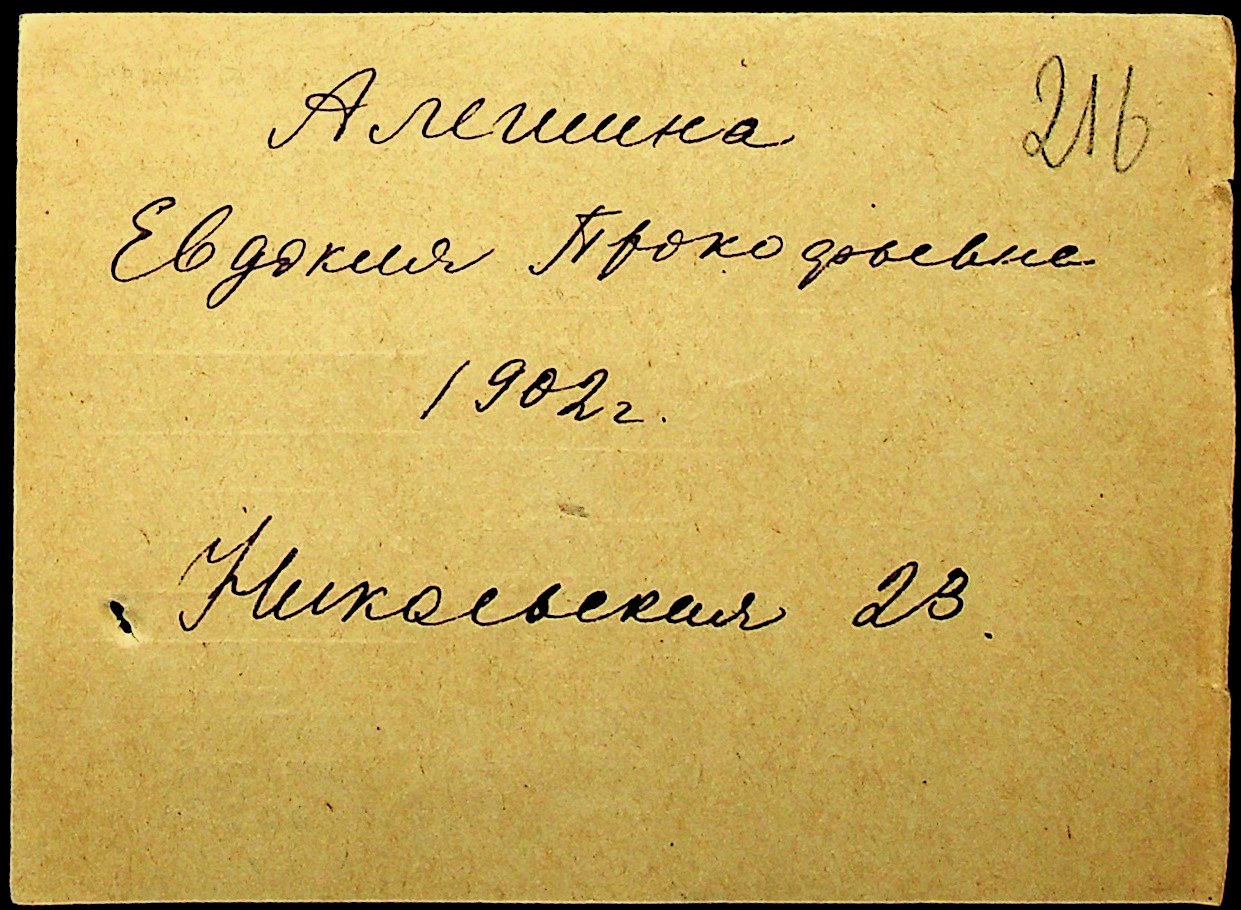 216
Алешина
Евдокия Прокофьевна
1902г.
Никольская 23.